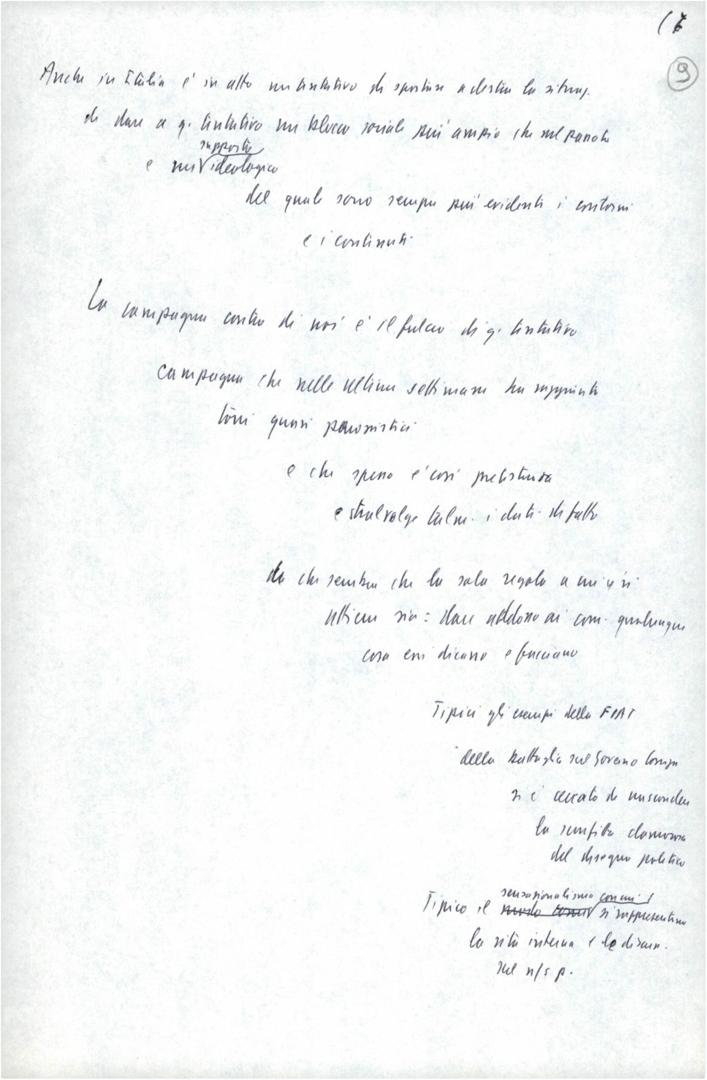 (7
9
Anche in Italia è in atto un tentativo di spostare a destra la situaz.
di dare a q. tentativo un blocco sociale più ampio che nel passato
supporto
e un ideologico
del quale sono sempre più evidenti i contorni
e i contenuti
La campagna contro di noi è il fulcro di q. tentativo
campagna che nelle ultime settimane ha raggiunto
toni quasi parossistici
e che spesso è così pretestuosa
e stravolge talm. i dati di fatto
da che sembra che la sola regola a cui ci si
attiene sia: dare addosso ai com. qualunque
cosa essi dicano e facciano
Tipici gli esempi della FIAT
della battaglia sul Governo
si è cercato di nascondere
la sconfitta clamorosa
del disegno politico
sensazionalismo con cui
Tipico il modo con cui si rappresentano
la vita interna e le discuss.
nel n/s p.